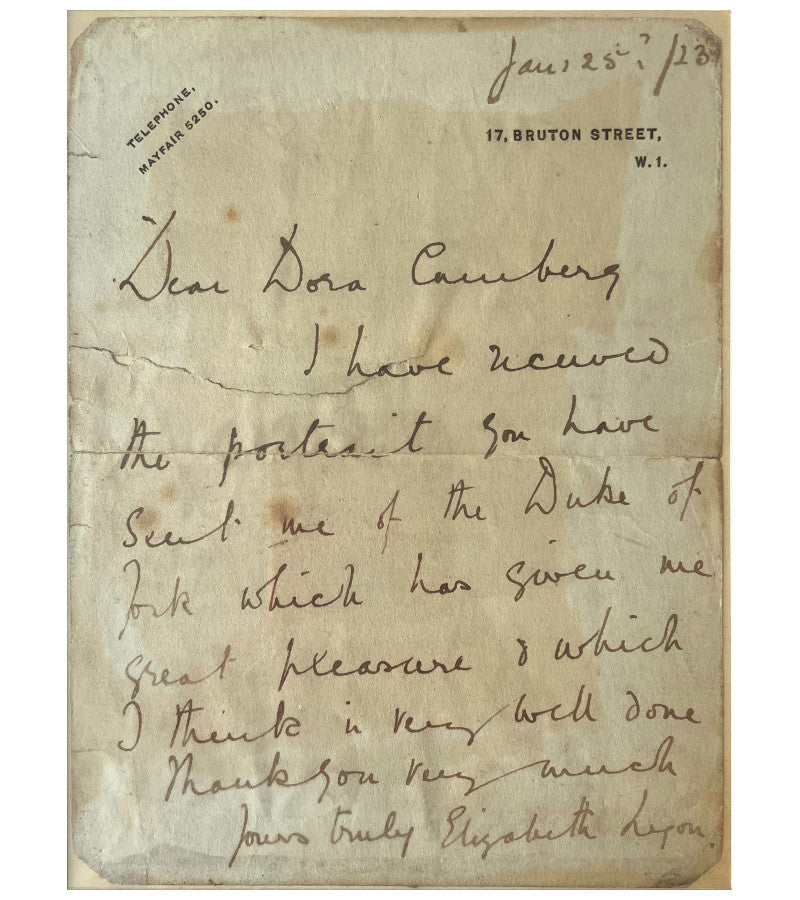 Jan: 25th /23
TELEPHONE,
MAYFAIR 5250.
17, BRUTON STREET,
W.1.
Dear Dora Camberg
I have received
the portrait you have
sent me of the Duke of
York which has given me
great pleasure & which
I think is very well done
Thank you very much
Yours truly Elizabeth Lyon.